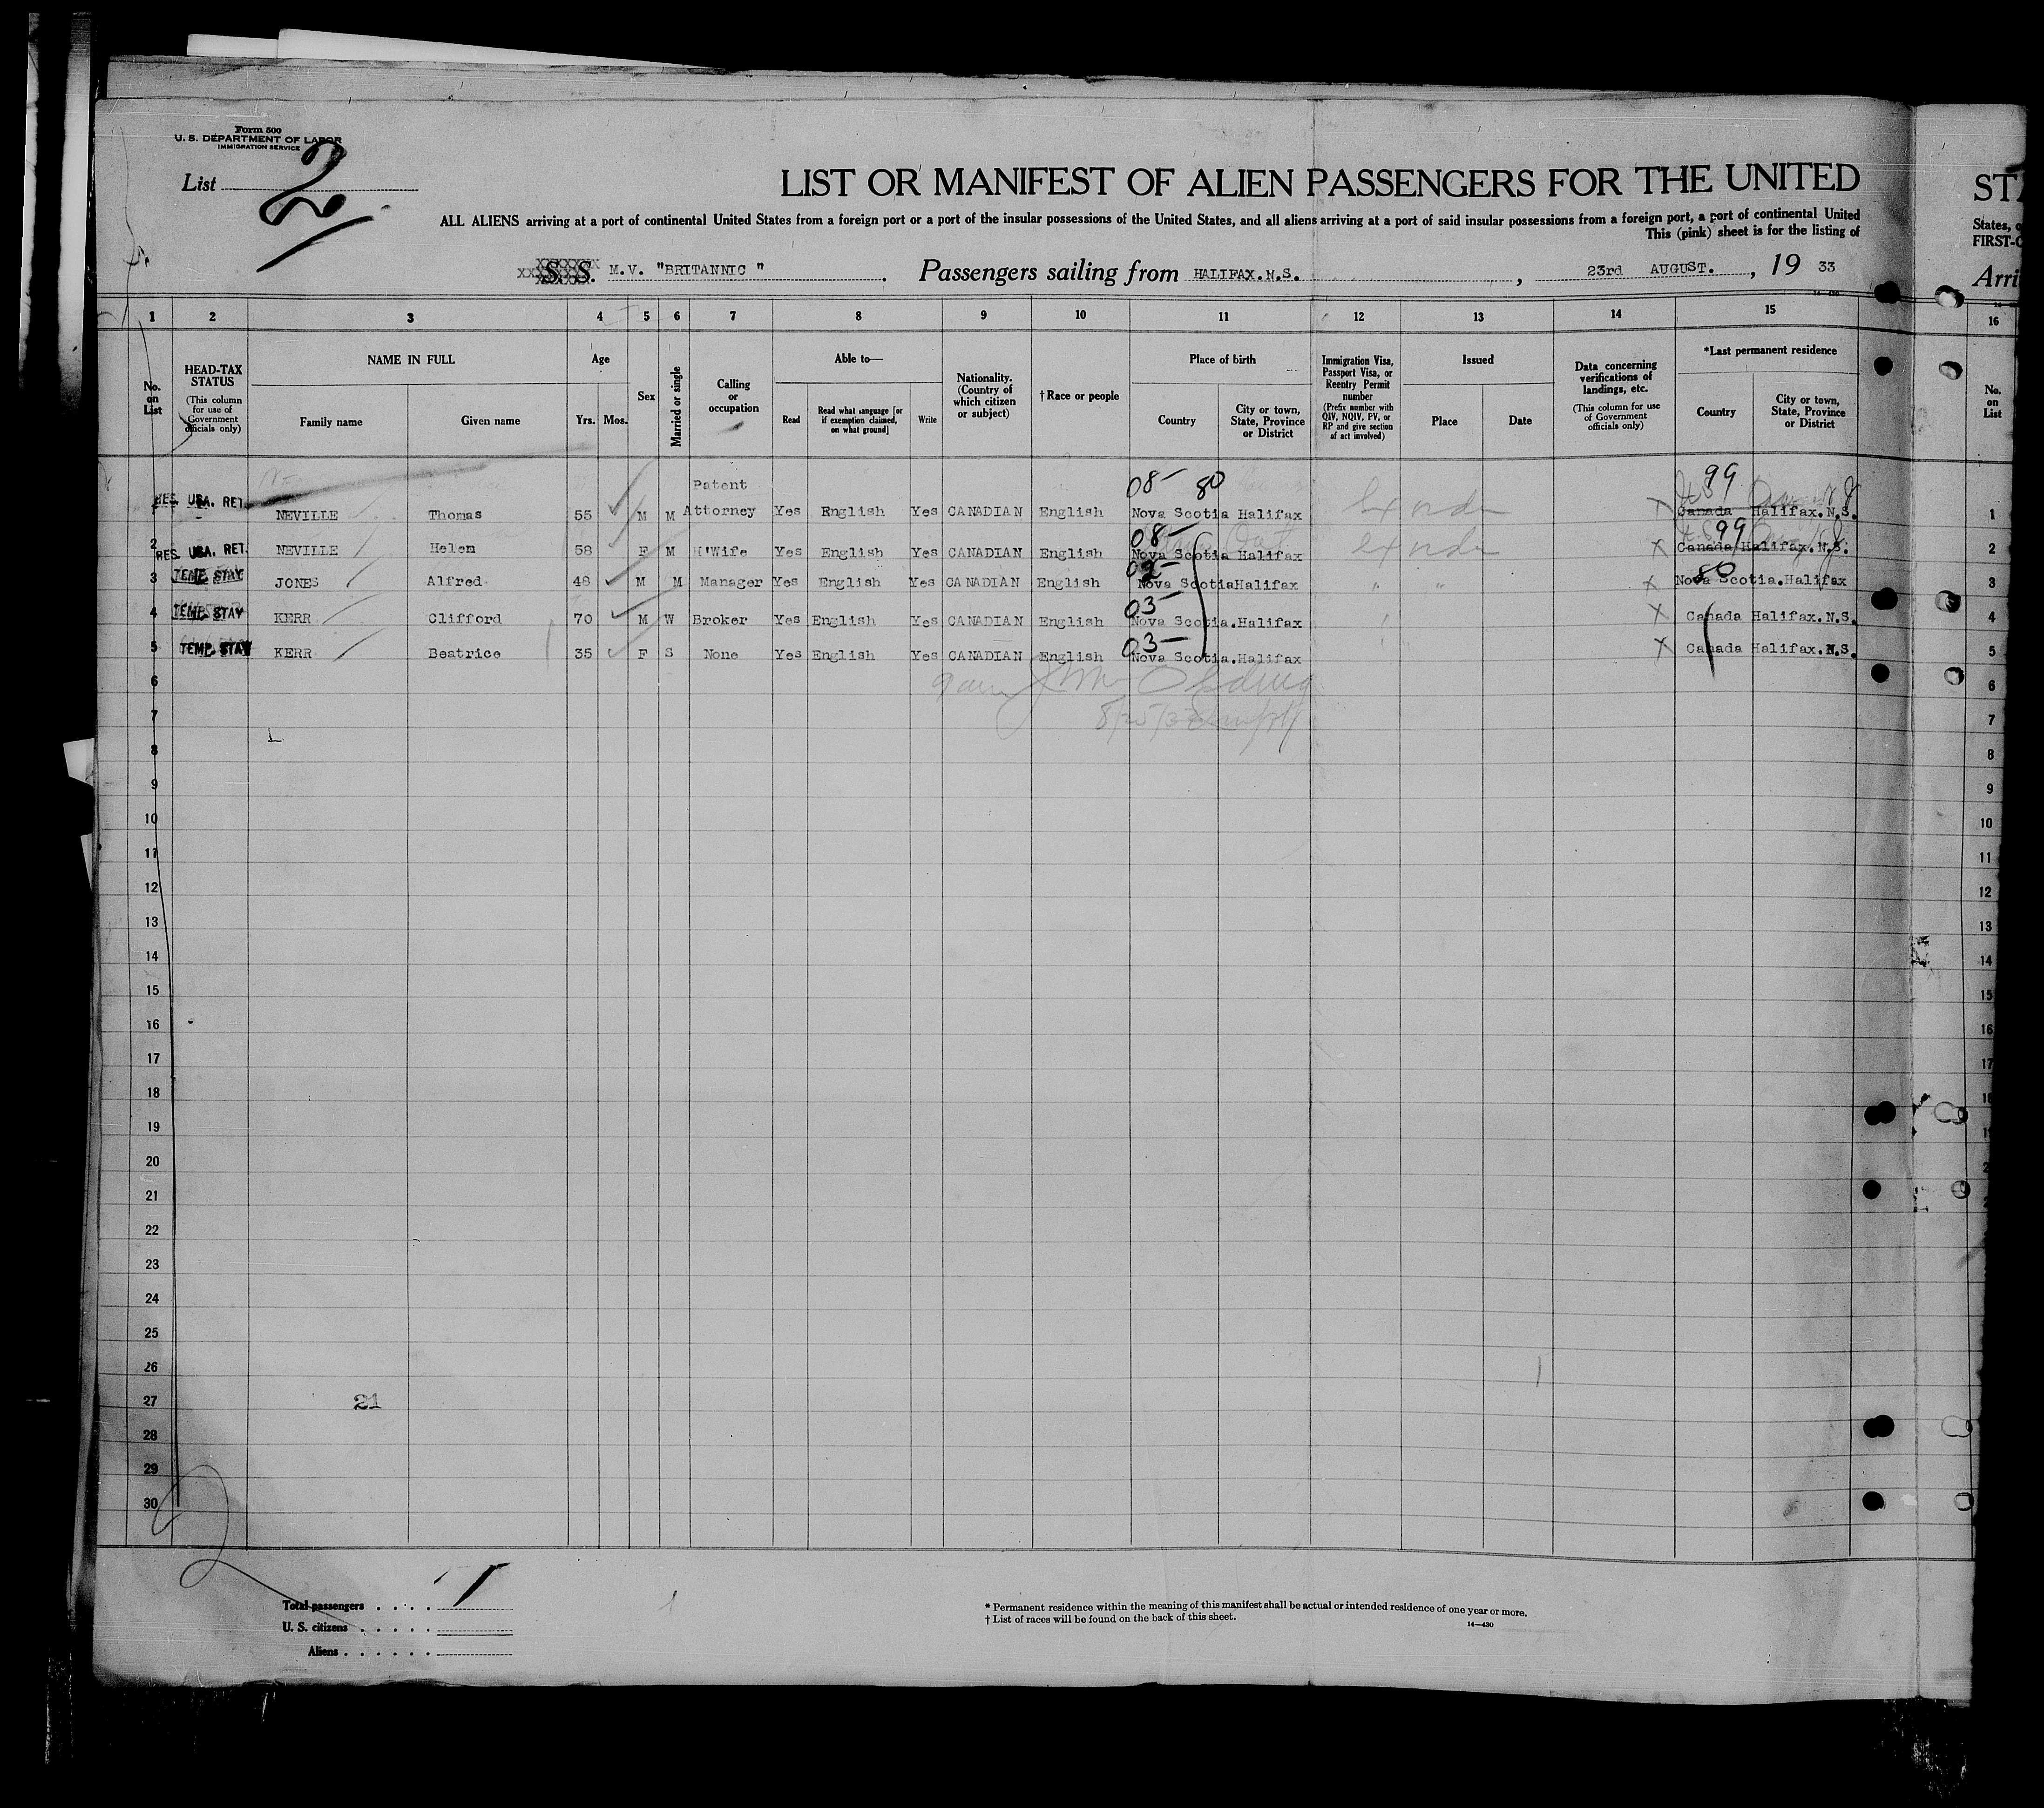 Form 500
U. S. DEPARTMENT OF LABOR
IMMIGRATION SERVICE
List 2
LIST OR MANIFEST OF ALIEN PASSENGERS FOR THE UNITED
ALL ALIENS arriving at a port of continental United States from a foreign port or a port of the insular possessions of the United States, and all aliens arriving at a port of said insular possessions from a foreign port, a port of continental United
This (pink) sheet is for the listing of
S. S. M.V. "BRITANNIC " . Passengers sailing from HALIFAX.N.S. , 23rd AUGUST. , 19 33
ST
States, o
FIRST-C
Arri
1 2 3 4 5 6 7 8 9 10 11 12 13 14 15 16
No. on List
HEAD-TAX STATUS
(This column for use of Government officials only)
NAME IN FULL
Family name Given name
Age
Yrs. Mos.
Sex
Married or single
Calling or occupation
Able to—
Read Read what language [or if exemption claimed, on what ground] Write
Nationality. (Country of which citizen or subject)
† Race or people
Place of birth
Country City or town, State, Province or District
Immigration Visa, Passport Visa, or Reentry Permit number
(Prefix number with QIV, NQIV, PV, or RP and give section of act involved)
Issued
Place Date
Data concerning verifications of landings, etc.
(This column for use of Government officials only)
*Last permanent residence
Country City or town, State, Province or District
No. on List
08- 80 99
1 RES. USA. RET. NEVILLE Thomas 55 M M Patent Attorney Yes English Yes CANADIAN English Nova Scotia Halifax X Canada Halifax.N.S. 1
08- 99
2 RES. USA. RET. NEVILLE Helen 58 F M H'Wife Yes English Yes CANADIAN English Nova Scotia Halifax X Canada Halifax.N.S. 2
80
3 TEMP. STAY JONES Alfred 48 M M Manager Yes English Yes CANADIAN English Nova Scotia Halifax X Nova Scotia.Halifax 3
03-
4 TEMP. STAY KERR Clifford 70 M W Broker Yes English Yes CANADIAN English Nova Scotia.Halifax X Canada Halifax.N.S. 4
03-
5 TEMP. STAY KERR Beatrice 35 F S None Yes English Yes CANADIAN English Nova Scotia.Halifax X Canada Halifax.N.S. 5
6 6
7 7
8 8
9 9
10 10
11 11
12 12
13 13
14 14
15 15
16 16
17 17
18 18
19
20
21
22
23
24
25
26
27 21
28
29
30
Total passengers . . . .
U. S. citizens . . . . .
Aliens . . . . . .
* Permanent residence within the meaning of this manifest shall be actual or intended residence of one year or more.
† List of races will be found on the back of this sheet.
14—430